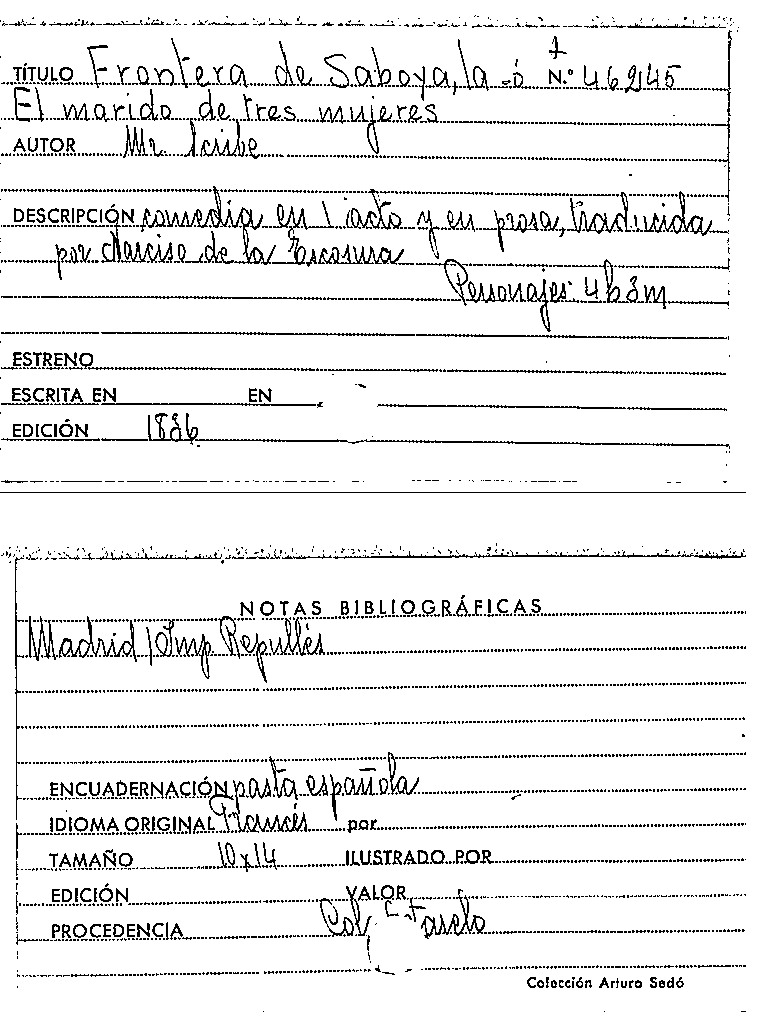 TÍTULO Frontera de Saboya, la - ó N.º 46245
El marido de tres mujeres
AUTOR Mr. Scribe
DESCRIPCIÓN comedia en 1 acto y en prosa, traducida
por Narciso de la Escosura
Personajes: 4h3m
ESTRENO
ESCRITA EN EN
EDICIÓN 1836
NOTAS BIBLIOGRÁFICAS
Madrid / Imp Repullés
ENCUADERNACIÓN pasta española
IDIOMA ORIGINAL Francés por
TAMAÑO 10x14 ILUSTRADO POR
EDICIÓN VALOR
PROCEDENCIA Col.
Colección Arturo Sedó